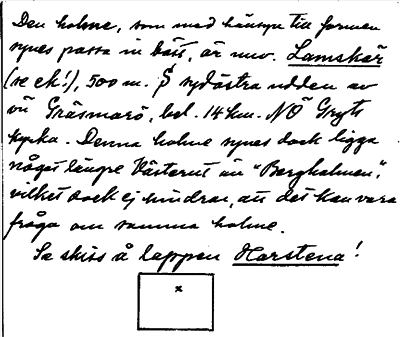 Den holme, som med hänsyn till formen
synes passa in bäst, är nuv. Lamskär
(se ek!), 500 m. S sydöstra udden av
ön Gräsmarö, bel. 14 km. NO Gryts
kyrka. Denna holme synes dock ligga
något längre västerut än "Bergholmen",
vilket dock ej hindrar, att det kan vara
fråga om samma holme.
Se skiss å lappen Harstena!
x